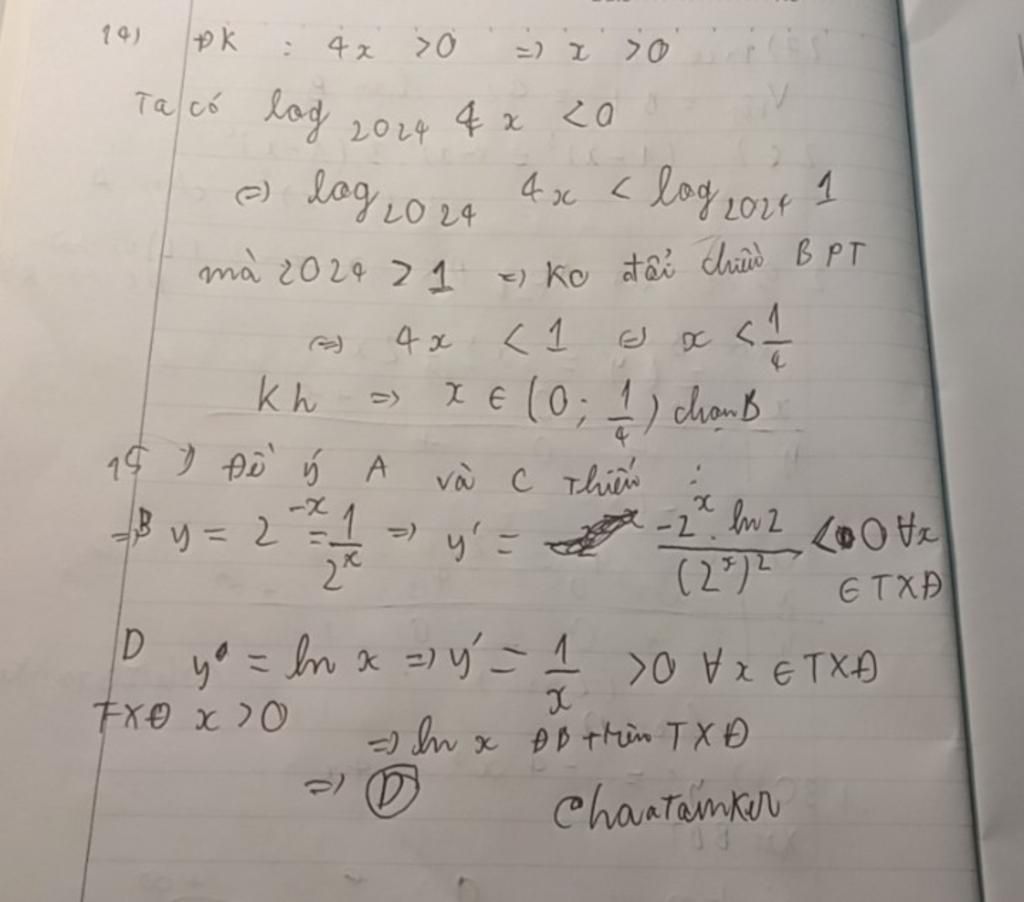 14) ĐK : 4x > 0 => x > 0
Ta có log₂₀₂₄ 4x < 0
<=> log₂₀₂₄ 4x < log₂₀₂₄ 1
mà 2024 > 1 => Ko đổi chiều BPT
<=> 4x < 1 <=> x < 1/4
Kh => x ∈ (0; 1/4) chọn B
15) Để ý A và C Thiếu :
=> B y = 2^(-x) = 1/2^x => y' = (-2^x . ln2)/(2^x)^2 < 0 ∀x
∈ TXĐ
D y = ln x => y' = 1/x > 0 ∀x ∈ TXĐ
TXĐ x > 0
=> ln x ĐB trên TXĐ
=> D